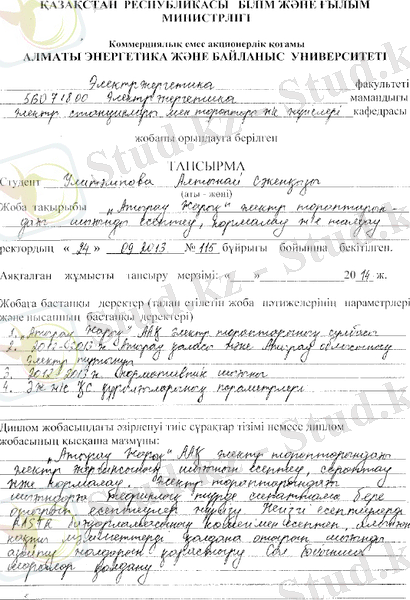 ҚАЗАҚСТАН РЕСПУБЛИКАСЫ БІЛІМ ЖӘНЕ ҒЫЛЫМ
МИНИСТРЛІГІ
Коммерциялық емес акционерлік қоғамы
АЛМАТЫ ЭНЕРГЕТИКА ЖӘНЕ БАЙЛАНЫС УНИВЕРСИТЕТІ
Электрэнергетика факультеті
5В071800 Электрэнергетика мамандығы
Электр станциялары мен тораптары ж-е жүйелері кафедрасы
жобаны орындауға берілген
ТАПСЫРМА
Студент
(аты - жөні)
Жоба тақырыбы „Атырау Жарық" электр тораптарын-
дағы шығынды есептеу, нормалау ж-е талдау
ректордың « 24 » 09 2013 № 115 бұйрығы бойынша бекітілген.
Аяқталған жұмысты тапсыру мерзімі: « » 20 14 ж.
Жобаға бастапқы деректер (талап етілетін жоба нәтижелерінің параметрлері
және нысанның бастапқы деректері)
1. „Атырау Жарық" ААҚ электр тораптарының сұлбасы
2. 2012-2013 ж Атырау қаласы және Атырау облысының
электр
3. 2012-2013 ж. нормативтік шығын
4. ЭЖ ж-е ҚС құрылғыларының параметрлері
Диплом жобасындағы әзірленуі тиіс сұрақтар тізімі немесе диплом
жобасының қысқаша мазмұны:
„Атырау Жарық" ААҚ электр тораптарындағы
электр энергиясының шығынын есептеу, сараптау
және нормалау. Электр тораптарындағы
шығындарға түрде сипаттама бере
отырып есептеулер жүргізу. Негізгі есептеулерді
RASTR бағдарламасының көмегімен есептеп,
қолдана отырып шығынды
азайту жолдарын қарастыру. Сол бойынша
шаралар қолдану